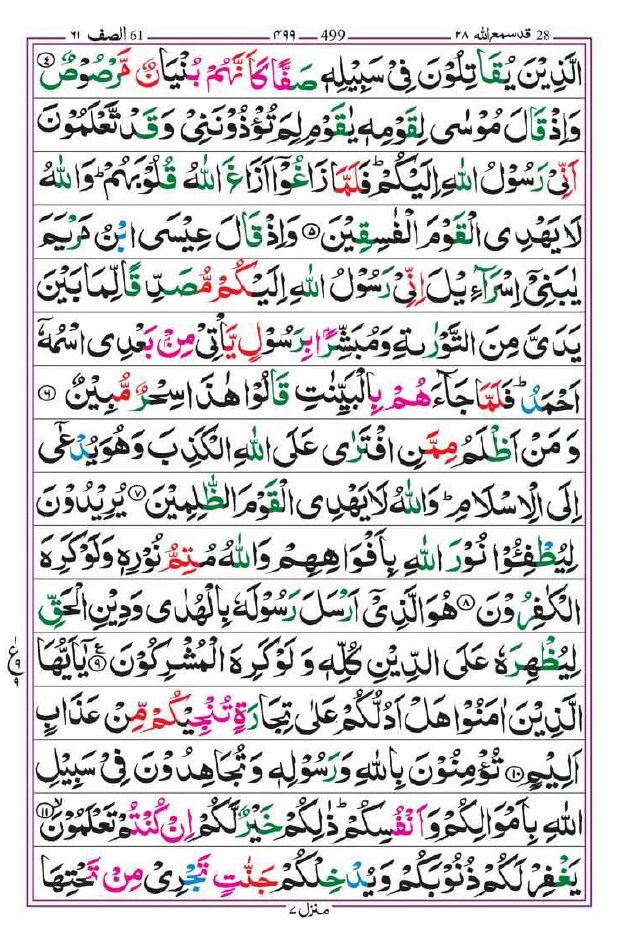 28 قد سمع الله ٢٨ 499 ٤٩٩ 61 الصف ٦١
الَّذِيْنَ يُقَاتِلُوْنَ فِيْ سَبِيْلِهٖ صَفًّا كَاَنَّهُمْ بُنْيَانٌ مَّرْصُوْصٌ ﴿٤﴾
وَاِذْ قَالَ مُوْسٰى لِقَوْمِهٖ يٰقَوْمِ لِمَ تُؤْذُوْنَنِيْ وَقَدْ تَّعْلَمُوْنَ
اَنِّيْ رَسُوْلُ اللّٰهِ اِلَيْكُمْ ؕ فَلَمَّا زَاغُوْۤا اَزَاغَ اللّٰهُ قُلُوْبَهُمْ ؕ وَاللّٰهُ
لَا يَهْدِى الْقَوْمَ الْفٰسِقِيْنَ ﴿٥﴾ وَاِذْ قَالَ عِيْسَى ابْنُ مَرْيَمَ
يٰبَنِيْۤ اِسْرَآءِيْلَ اِنِّيْ رَسُوْلُ اللّٰهِ اِلَيْكُمْ مُّصَدِّقًا لِّمَا بَيْنَ
يَدَيَّ مِنَ التَّوْرٰىةِ وَمُبَشِّرًۢا بِرَسُوْلٍ يَّاْتِيْ مِنْۢ بَعْدِى اسْمُهٗۤ
اَحْمَدُ ؕ فَلَمَّا جَآءَهُمْ بِالْبَيِّنٰتِ قَالُوْا هٰذَا سِحْرٌ مُّبِيْنٌ ﴿٦﴾
وَمَنْ اَظْلَمُ مِمَّنِ افْتَرٰى عَلَى اللّٰهِ الْكَذِبَ وَهُوَ يُدْعٰۤى
اِلَى الْاِسْلَامِ ؕ وَاللّٰهُ لَا يَهْدِى الْقَوْمَ الظّٰلِمِيْنَ ﴿٧﴾ يُرِيْدُوْنَ
لِيُطْفِـُٔوْا نُوْرَ اللّٰهِ بِاَفْوَاهِهِمْ وَاللّٰهُ مُتِمُّ نُوْرِهٖ وَلَوْ كَرِهَ
الْكٰفِرُوْنَ ﴿٨﴾ هُوَ الَّذِيْۤ اَرْسَلَ رَسُوْلَهٗ بِالْهُدٰى وَدِيْنِ الْحَقِّ
لِيُظْهِرَهٗ عَلَى الدِّيْنِ كُلِّهٖ وَلَوْ كَرِهَ الْمُشْرِكُوْنَ ﴿٩﴾ يٰۤاَيُّهَا
ع ٩ ٩
الَّذِيْنَ اٰمَنُوْا هَلْ اَدُلُّكُمْ عَلٰى تِجَارَةٍ تُنْجِيْكُمْ مِّنْ عَذَابٍ
اَلِيْمٍ ﴿١٠﴾ تُؤْمِنُوْنَ بِاللّٰهِ وَرَسُوْلِهٖ وَتُجَاهِدُوْنَ فِيْ سَبِيْلِ
اللّٰهِ بِاَمْوَالِكُمْ وَاَنْفُسِكُمْ ؕ ذٰلِكُمْ خَيْرٌ لَّكُمْ اِنْ كُنْتُمْ تَعْلَمُوْنَ ﴿١١﴾
يَغْفِرْ لَكُمْ ذُنُوْبَكُمْ وَيُدْخِلْكُمْ جَنّٰتٍ تَجْرِيْ مِنْ تَحْتِهَا
منزل ٧